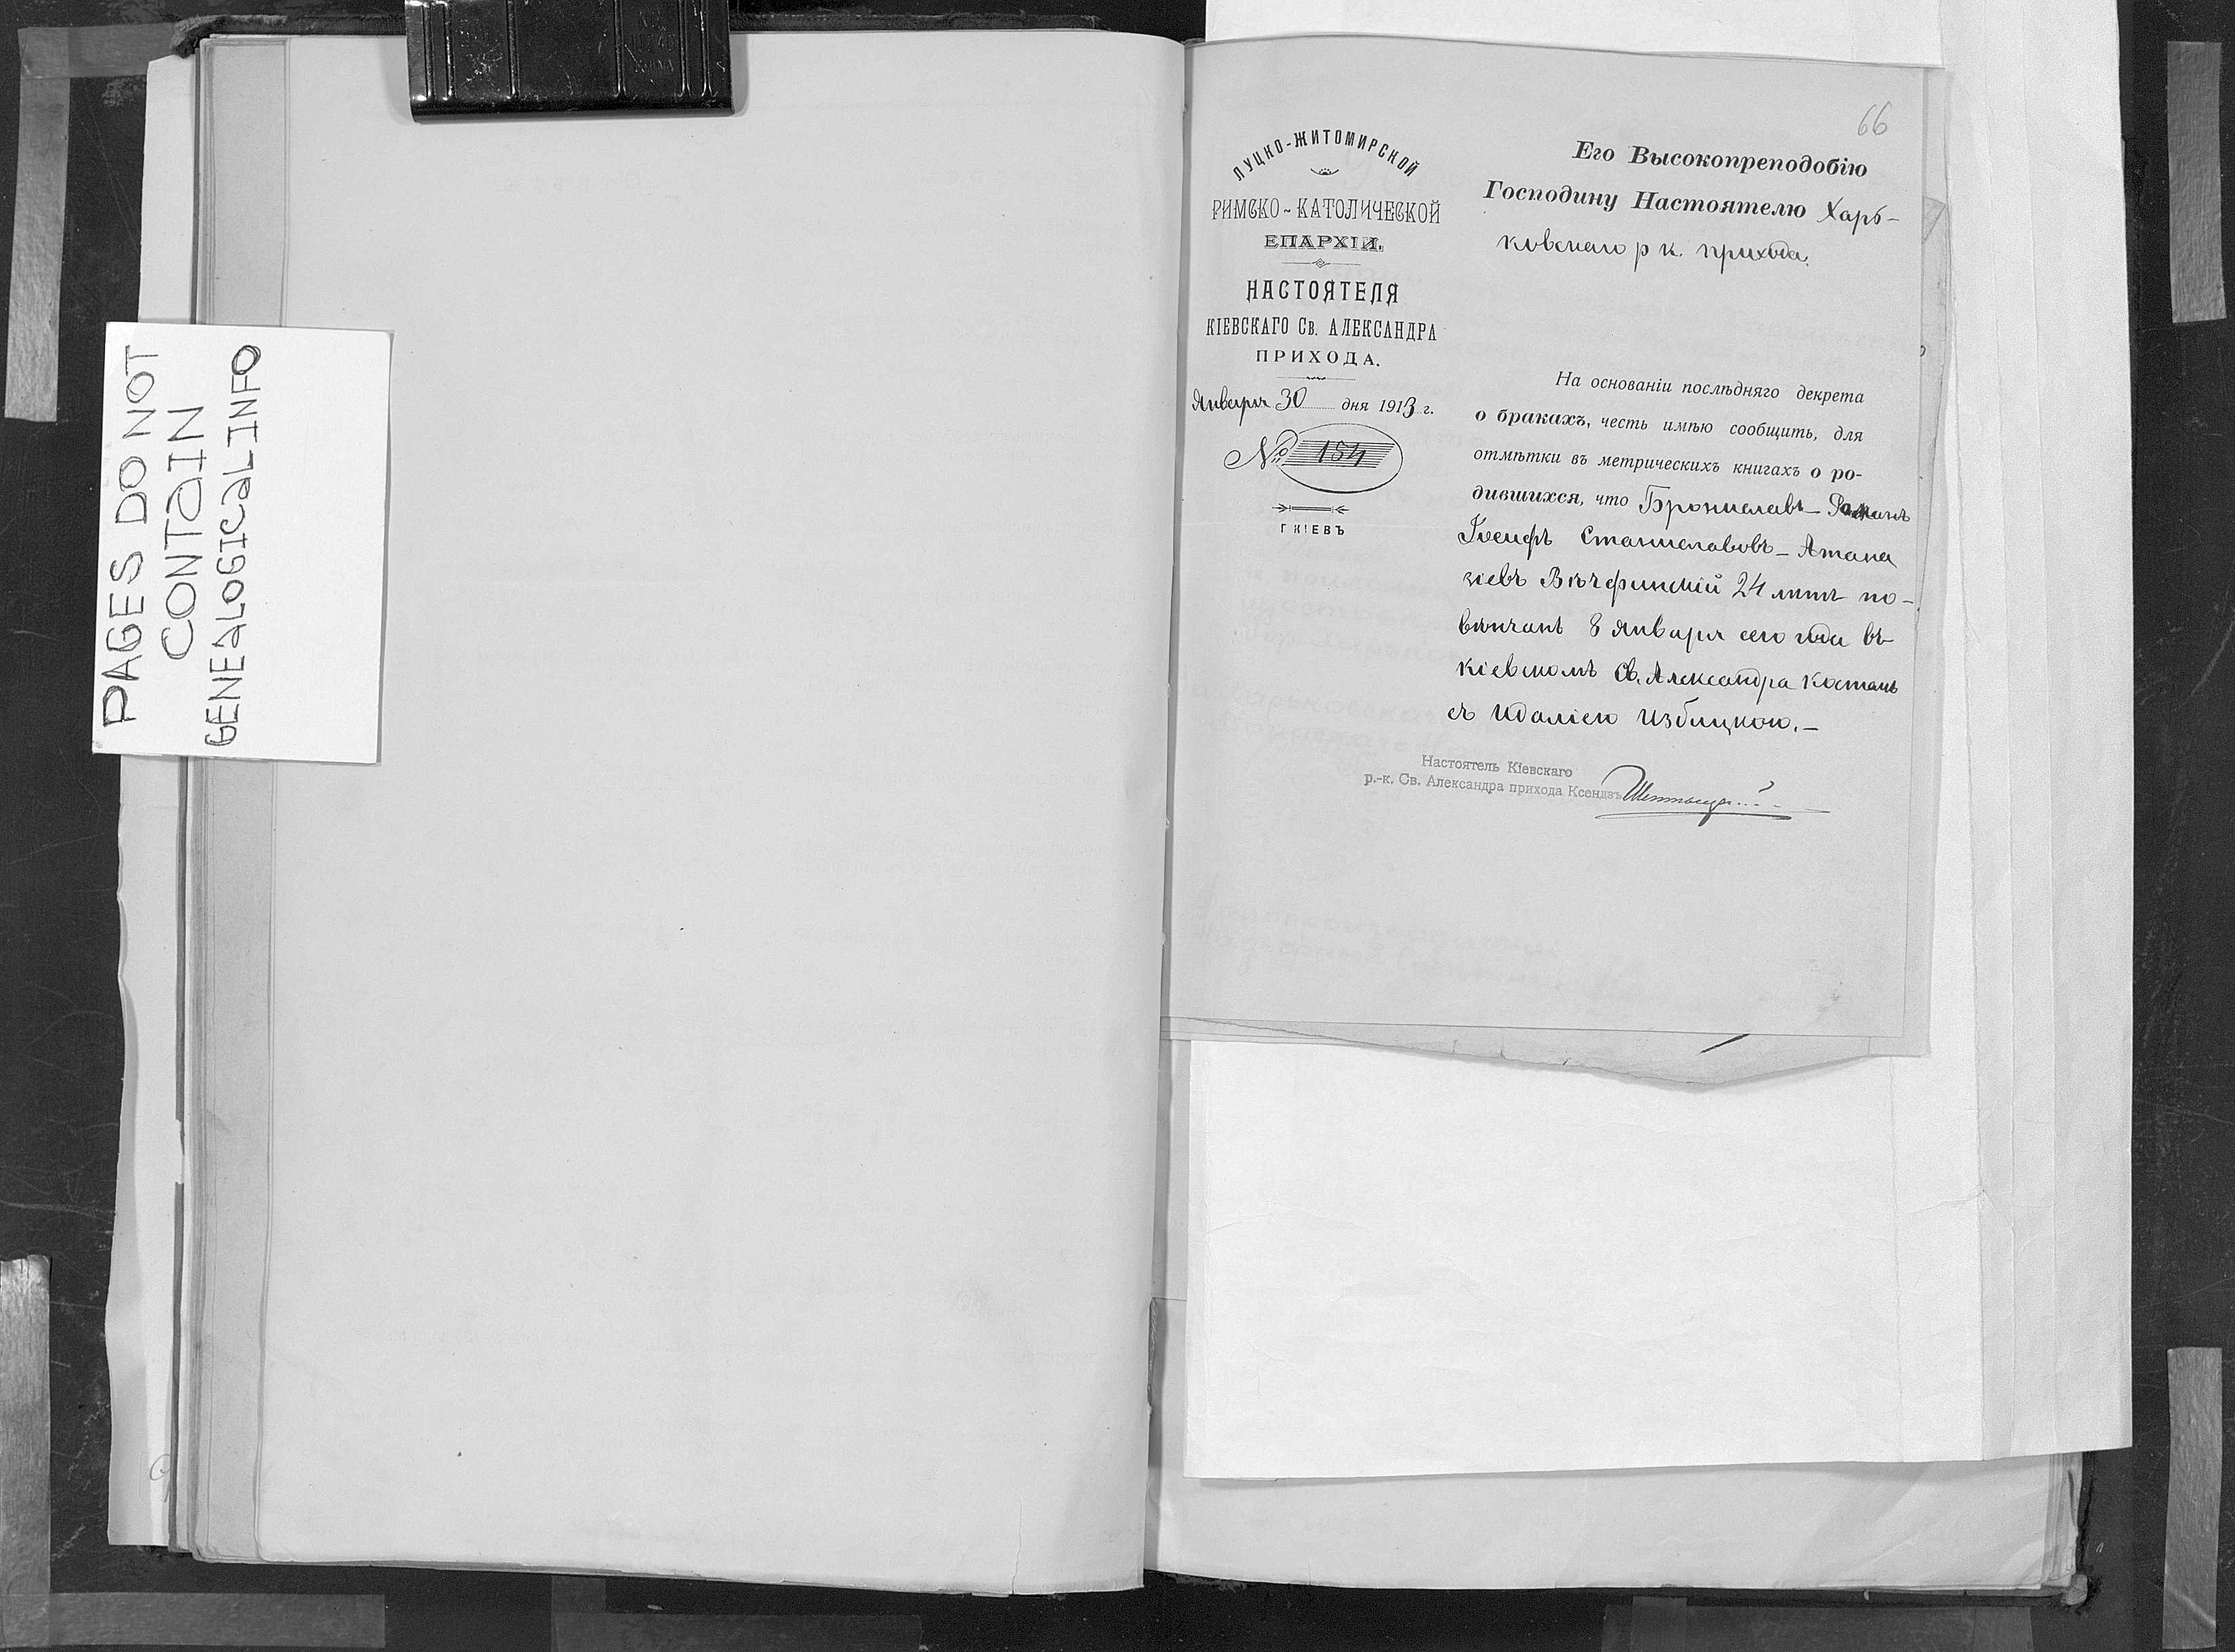 PAGES DO NOT
CONTAIN
GENEALOGICAL INFO
66
ЛУЦКО-ЖИТОМИРСКОЙ
РИМСКО-КАТОЛИЧЕСКОЙ
ЕПАРХІИ.
НАСТОЯТЕЛЯ
КІЕВСКАГО Св. АЛЕКСАНДРА
ПРИХОДА.
Января 30 дня 1913 г.
№ 154
Г КІЕВЪ
Его Высокопреподобію
Господину Настоятелю Харь-
ковскаго р к. прихода.
На основаніи послѣдняго декрета
о бракахъ, честь имѣю сообщить, для
отмѣтки въ метрическихъ книгахъ о ро-
дившихся, что Брониславъ-Романъ
Іосифъ Станиславовъ-Атана
зіевъ Вѣчфинскій 24 лѣтъ по-
вѣнчанъ 8 января сего года въ
кіевскомъ Св. Александра костелѣ
съ Идаліею Избицкою.-
Настоятель Кіевскаго
р.-к. Св. Александра прихода Ксендзъ